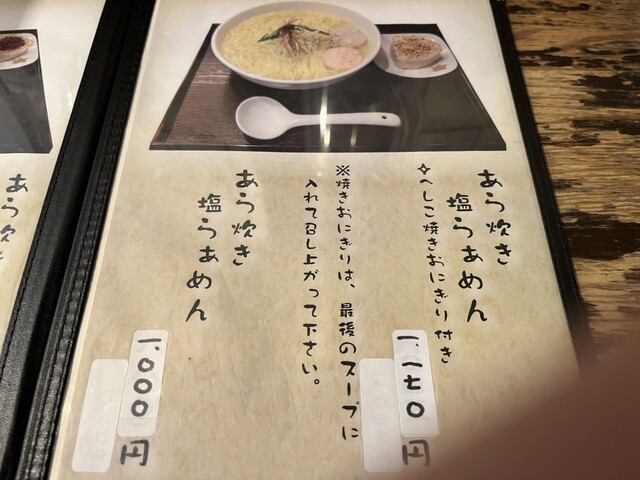 あら炊き
塩らぁめん
✧へしこ焼きおにぎり付き
一、一七〇円
※焼きおにぎりは、最後のスープに
入れて召し上がって下さい。
あら炊き
塩らぁめん
一、〇〇〇円
あら炊き